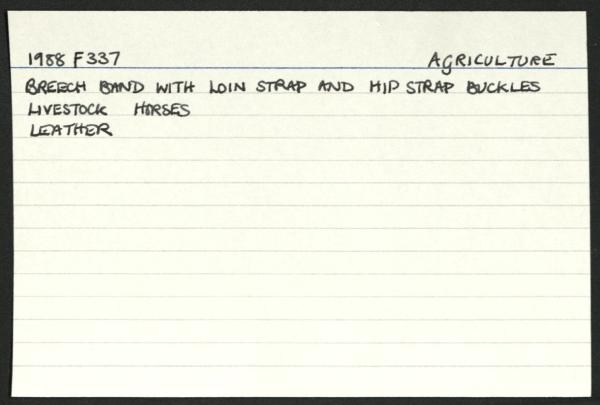 1988 F337 AGRICULTURE
BREECH BAND WITH LOIN STRAP AND HIP STRAP BUCKLES
LIVESTOCK HORSES
LEATHER